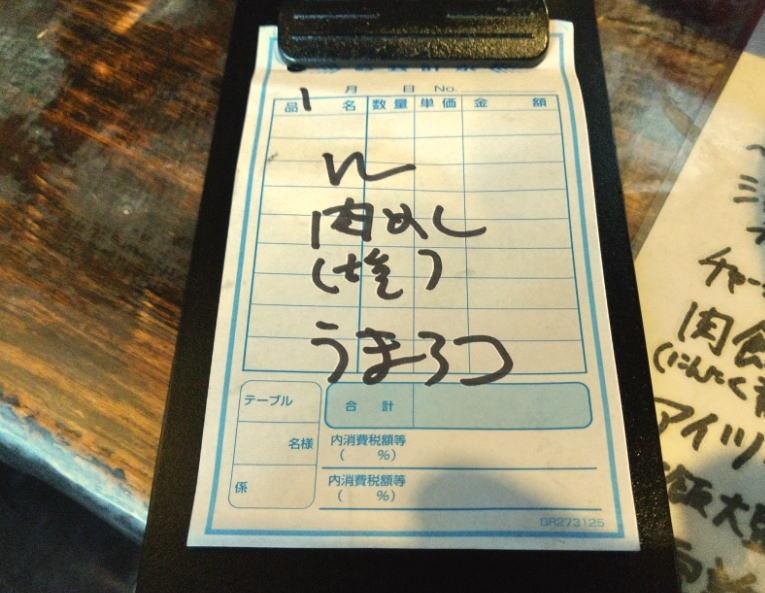 月 日 No.
品 名 数量 単価 金 額
1
肉めし
(塩)
うまろつ
テーブル
名様
係
合 計
内消費税額等
( %)
内消費税額等
( %)
GR273125
チャー
肉飯
(にんにく
アイツ
飯大